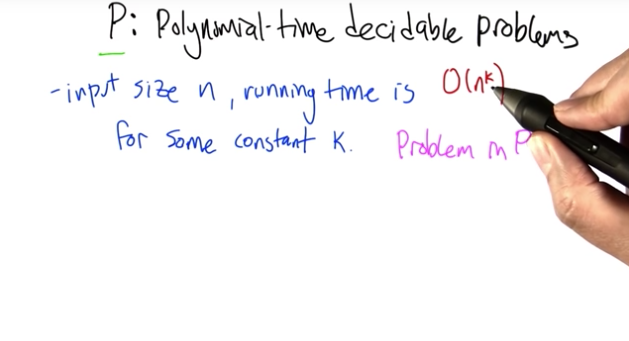 P: Polynomial-time decidable problems
-input size n, running time is O(nᵏ)
for some constant K. Problem in P